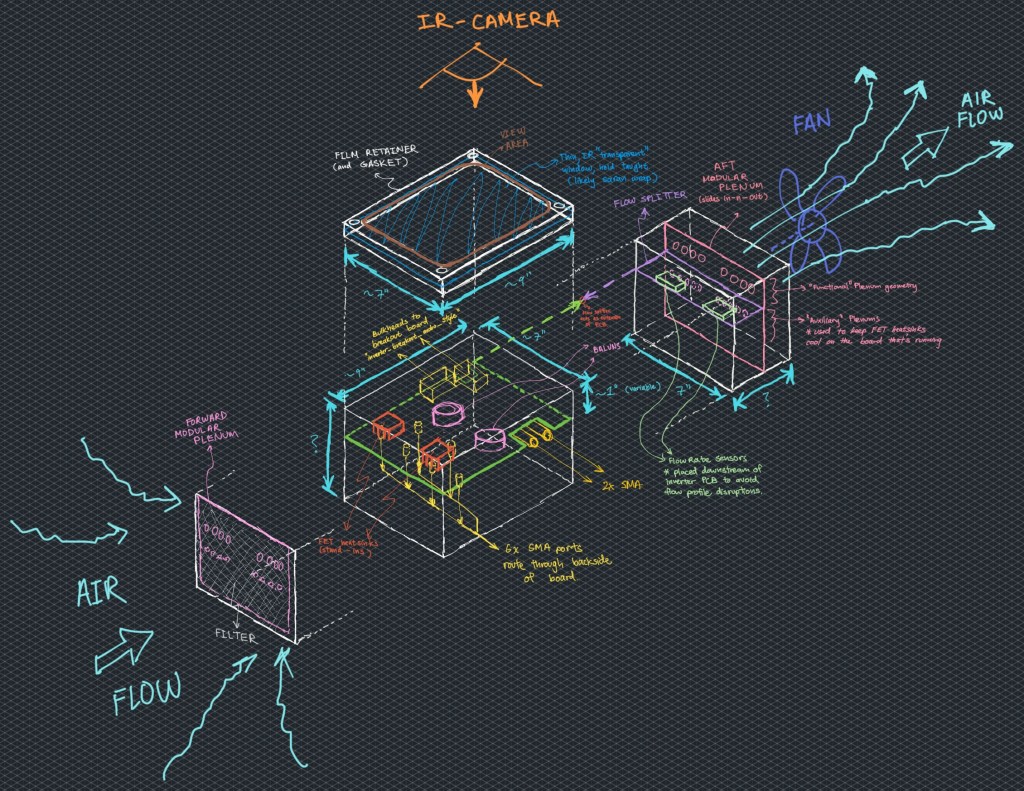 IR-CAMERA
FILM RETAINER
(and GASKET)
VIEW
AREA
Thin, IR "transparent"
window, held taught
(likely saran wrap)
~7"
~9"
FAN
AIR
FLOW
AFT
MODULAR
PLENUM
(slides in-n-out)
FLOW SPLITTER
"Functional" Plenum geometry
"Auxiliary" Plenums
* used to keep FET heatsinks
cool on the board that's running
7"
?
Flow Rate sensors
* placed downstream of
inverter PCB to avoid
flow profile disruptions.
Bulkheads to
breakout board
~9"
~7"
BALUNS
~1" (variable)
?
2x SMA
FET heatsinks
(stand-ins)
6x SMA ports
route through backside
of board
FORWARD
MODULAR
PLENUM
FILTER
AIR
FLOW